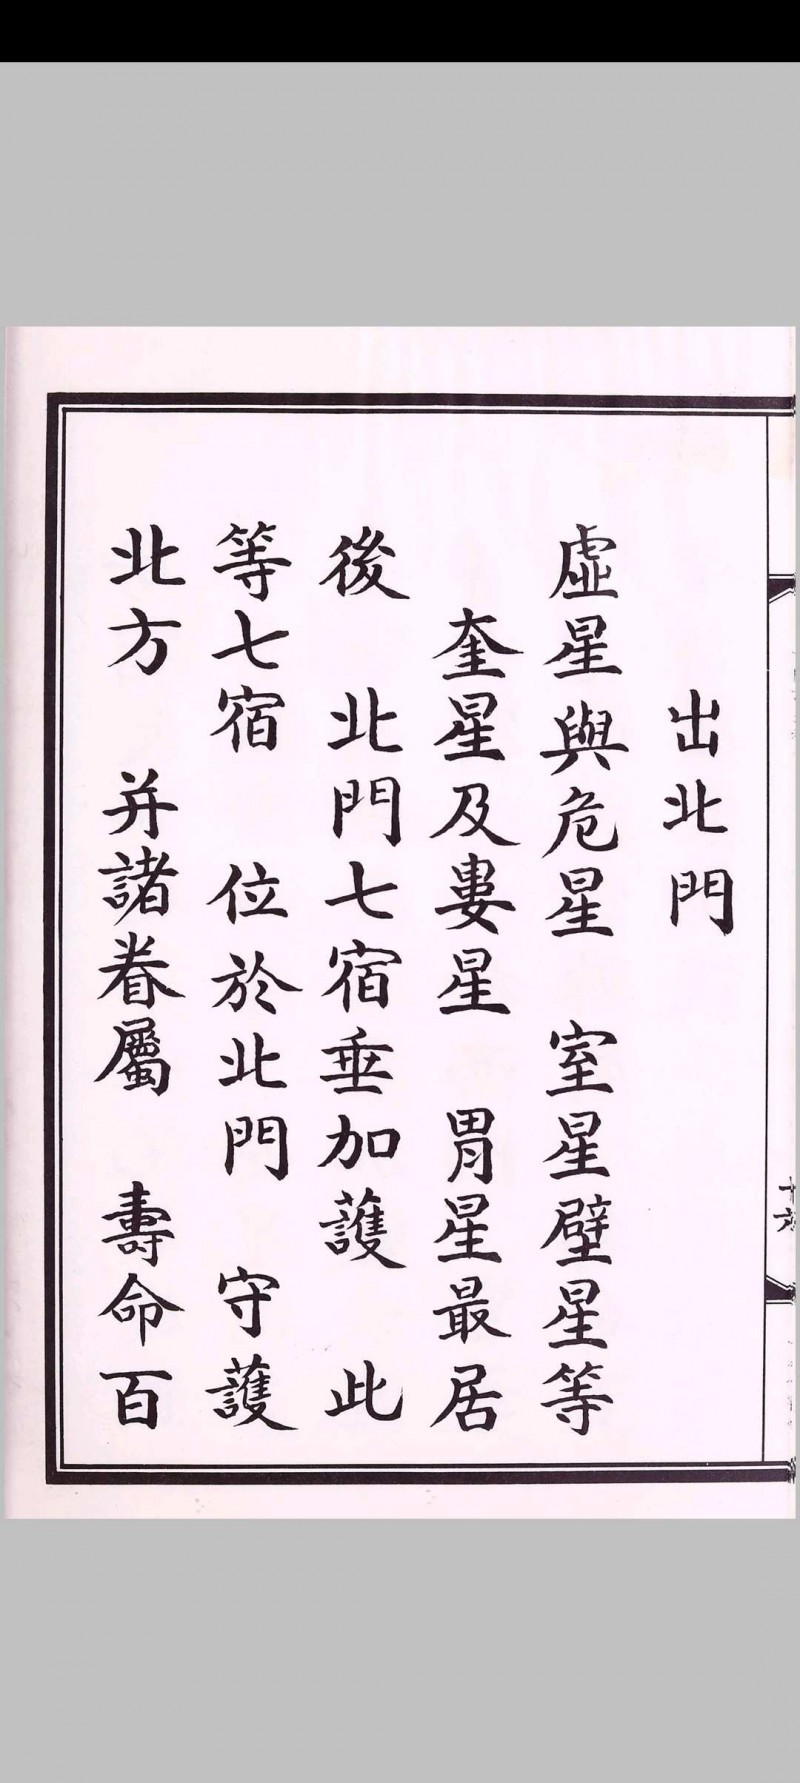 出北門
虛星與危星　室星壁星等
奎星及婁星　胃星最居
後　北門七宿垂加護　此
等七宿　位於北門　守護
北方　并諸眷屬　壽命百
十六